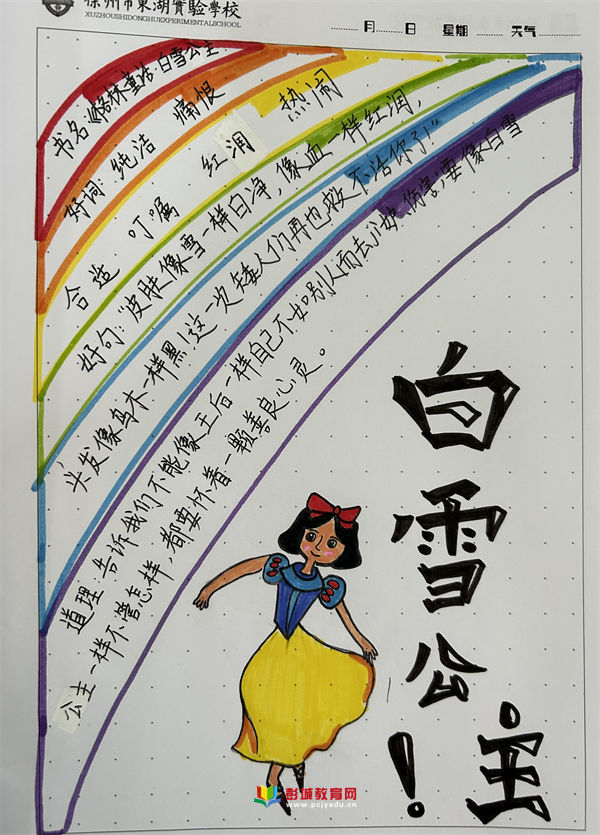 徐州市東湖實驗學校
XUZHOUSHIDONGHUEXPERIMENTALSCHOOL
月 日 星期 天气
书名《格林童话·白雪公主
好词:纯洁 痛恨
合造 叮嘱 红润 热闹
好句:“皮肤像雪一样白净,像血一样红润,
头发像乌木一样黑!这一次矮人们再也救不活你了!”
道理:告诉我们不能像王后一样自己不如别人而去嫉妒、伤害;要像白雪
公主一样不管怎样,都要怀着一颗善良心灵。
白雪公主!
彭城教育网
www.pcjyedu.cn